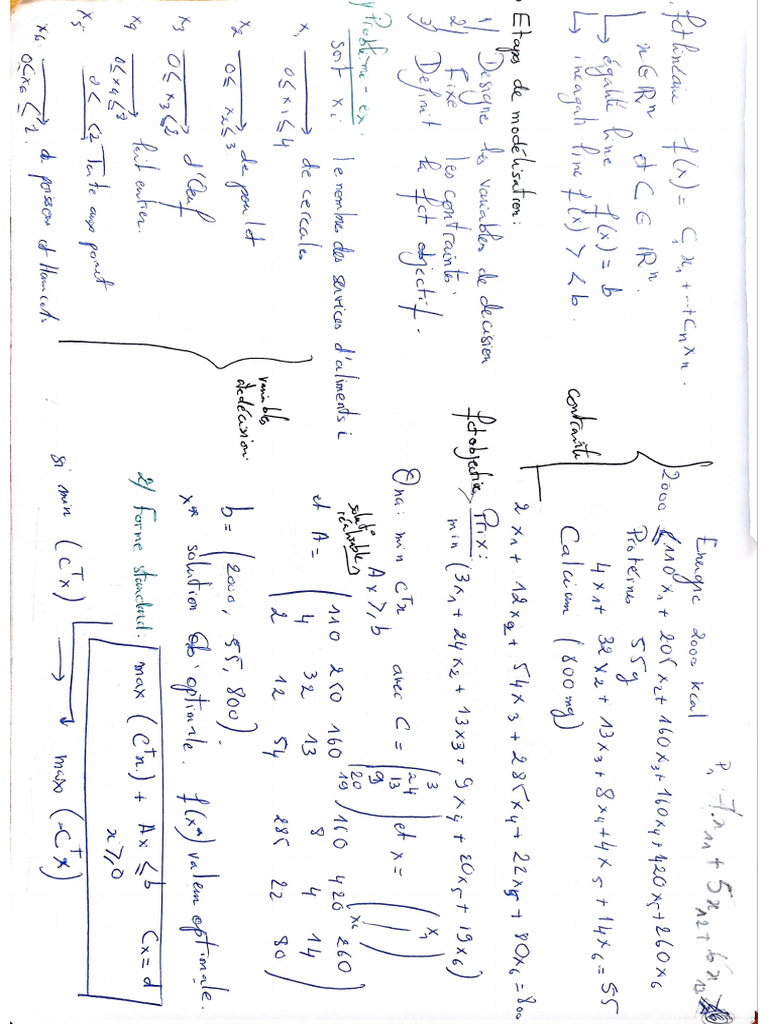 fct linéaire f(x) = C₁x₁ + ... + Cₙxₙ.
x ∈ ℝⁿ et C ∈ ℝⁿ.
↳ égalité line f(x) = b
↳ inegali line f(x) > < b.
Etaps de modélisation:
1) Designe les variables de decision
2) Fixe les contraintes.
3) Definit la fct objectif.
1/ Problème-ex.
soit xᵢ le nombre des services d'aliments i
x₁ → de cercales
0 ≤ x₁ ≤ 4
x₂ → de poulet
0 ≤ x₂ ≤ 3
x₃ → d'Oeuf
0 ≤ x₃ ≤ 2
x₄ → lait entier.
0 ≤ x₄ ≤ 8
x₅ → Tarte aux
0 < < 2
x₆ → de poisson et
0 ≤ x₆ ≤ 2.
variables de décision.
P₁ 7.x₁₁ + 5x₁₂ + 6x₁₃
Energie 2000 kcal
2000 ≤ 110x₁ + 205x₂ + 160x₃ + 160x₄ + 420x₅ + 260x₆
Protéines 55g
contrainte
4x₁ + 32x₂ + 13x₃ + 8x₄ + 4x₅ + 14x₆ = 55
Calcium (800mg)
2x₁ + 12x₂ + 54x₃ + 285x₄ + 22x₅ + 80x₆ = 800
fct objective, Prix:
min (3x₁ + 24x₂ + 13x₃ + 9x₄ + 20x₅ + 19x₆)
On a: min Cᵀx avec C = (3 24 13 9 20 19) et x = (x₁ x₆)
solut réalisables Ax ≥ b
et A = (110 250 160 160 420 260
4 32 13 8 4 14
2 12 54 285 22 80)
b = (2000, 55, 800)
x* solution optimale. f(x*) valeur optimale.
2/ forme standard.
max (Cᵀx) + Ax ≤ b Cx = d
x ≥ 0
si min (Cᵀx) → max (-Cᵀx)